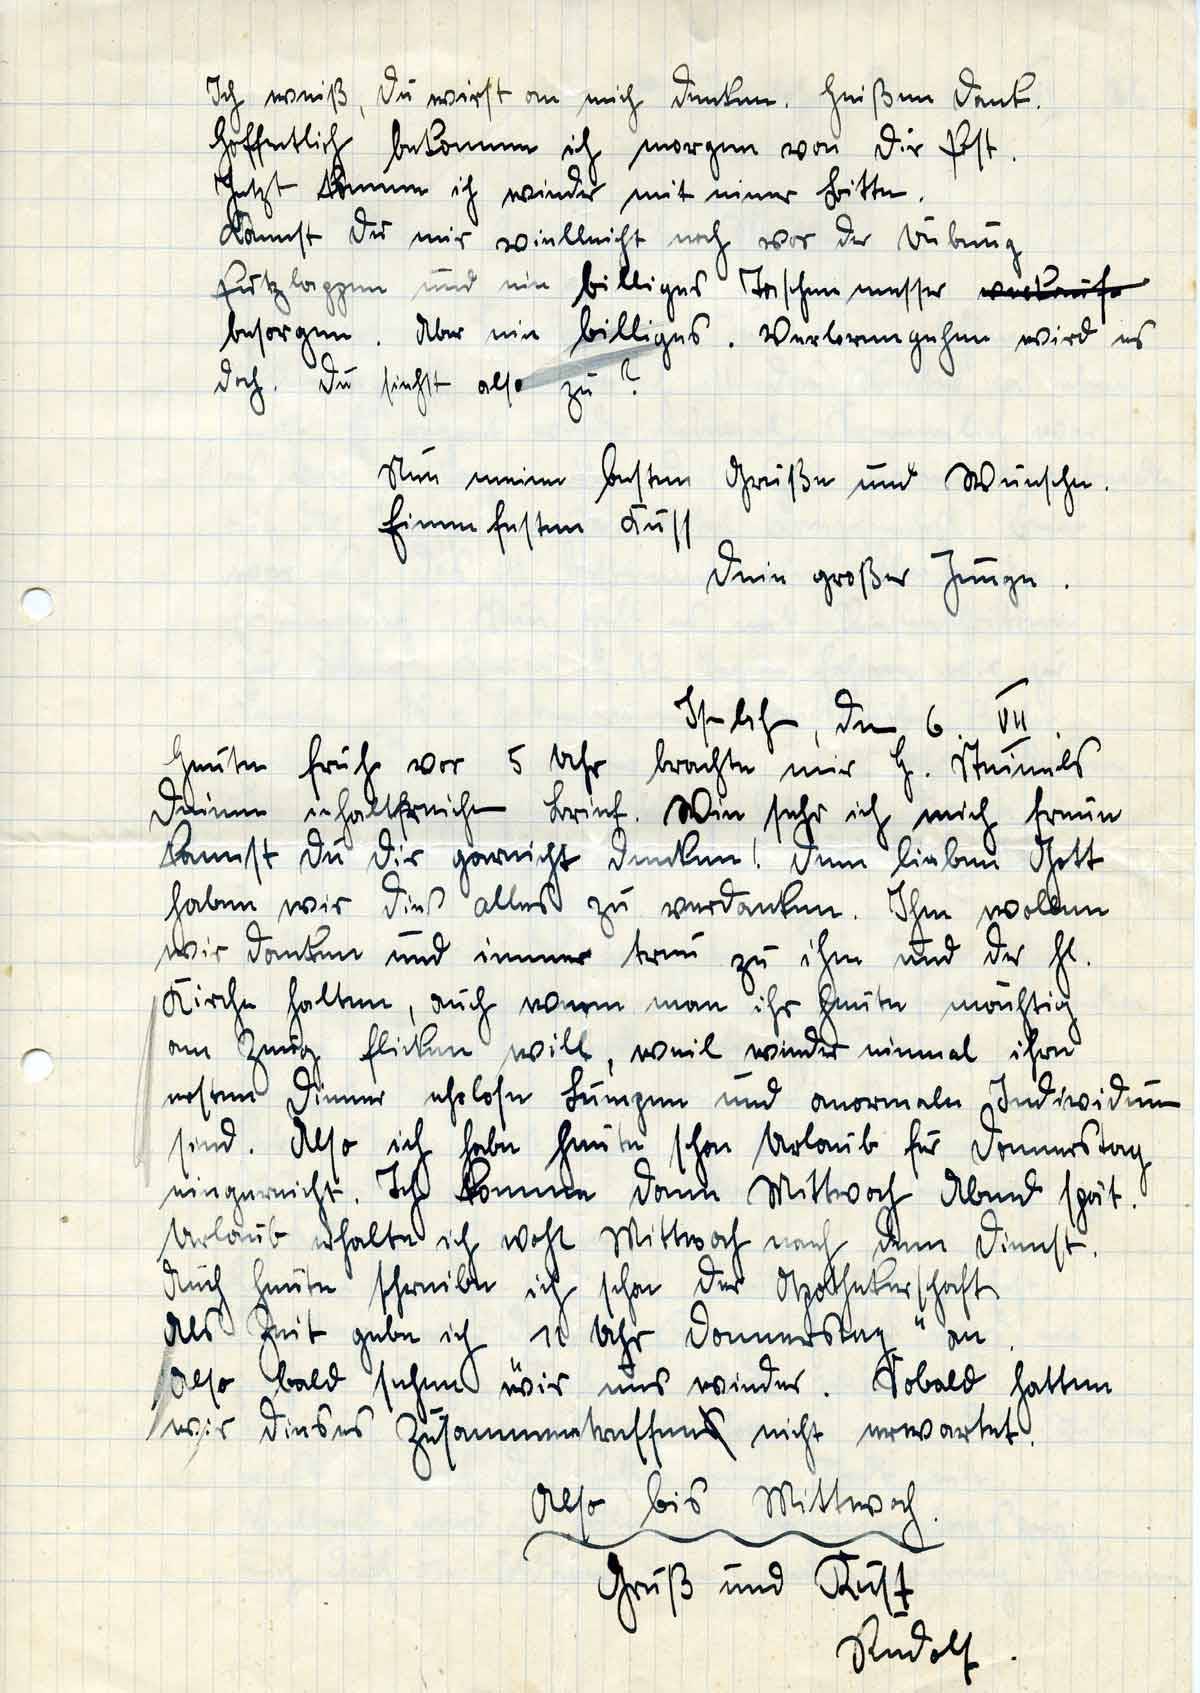 Ich weiß, Du wirst an mich denken. Heißen Dank.
Hoffentlich bekomme ich morgen von Dir Post.
Jetzt komme ich wieder mit einer Bitte.
Kannst Du mir vielleicht noch vor der Übung
Putzlappen und ein billiges Taschenmesser
besorgen. Aber ein billiges. Verlorengehen wird es
doch. Du siehst also zu?
Nun meine besten Grüße und Wünsche.
Einen festen Kuss
Dein großer Junge.
den 6. VII.
Heute früh vor 5 Uhr brachte mir H.
Deinen inhaltsreichen Brief. Wie sehr ich mich freue
kannst Du Dir garnicht denken! Dem lieben Gott
haben wir dies alles zu verdanken. Ihm wollen
wir danken und immer treu zu ihm und der hl.
Kirche halten, auch wenn man ihr heute mächtig
am Zeug flicken will, weil wieder einmal ihre
ersten Diener ehrlose Lumpen und anormale Individuen
sind. Also ich habe heute schon Urlaub für Donnerstag
eingereicht. Ich komme dann Mittwoch Abend spät.
Urlaub erhalte ich wohl Mittwoch nach dem Dienst.
Auch heute schreibe ich schon der Apothekerschaft
Als Zeit gebe ich "11 Uhr Donnerstag" an.
Also bald sehen wir uns wieder. Sobald hatten
wir dieses Zusammentreffen nicht erwartet.
Also bis Mittwoch.
Gruß und Kuss
Rudolf.